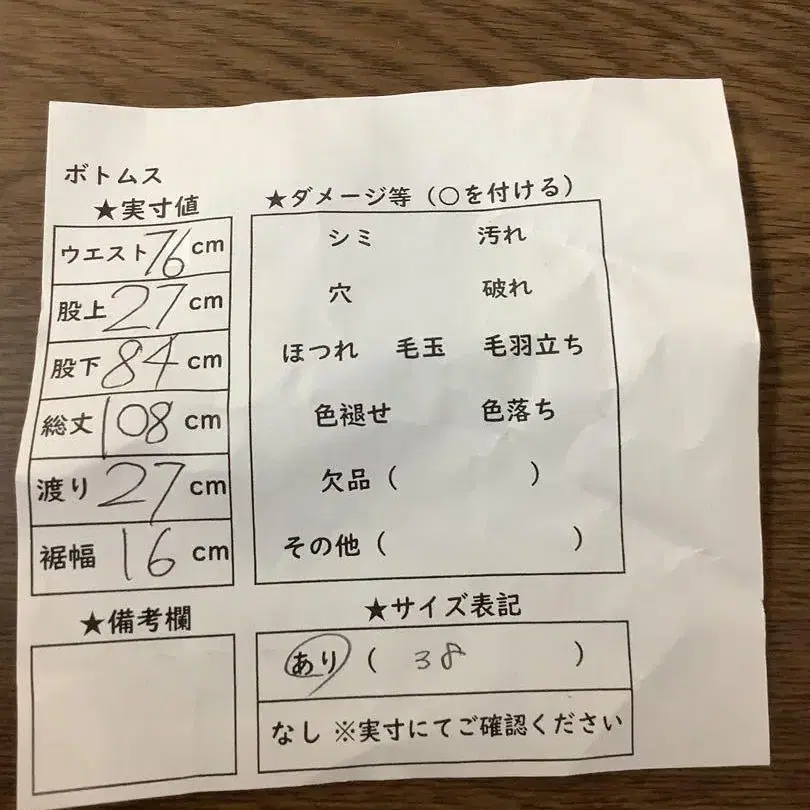 ボトムス
★実寸値
ウエスト 76 cm
股上 27 cm
股下 84 cm
総丈 108 cm
渡り 27 cm
裾幅 16 cm
★備考欄
★ダメージ等（○を付ける）
シミ 汚れ
穴 破れ
ほつれ 毛玉 毛羽立ち
色褪せ 色落ち
欠品（ ）
その他（ ）
★サイズ表記
あり（ 38 ）
なし ※実寸にてご確認ください